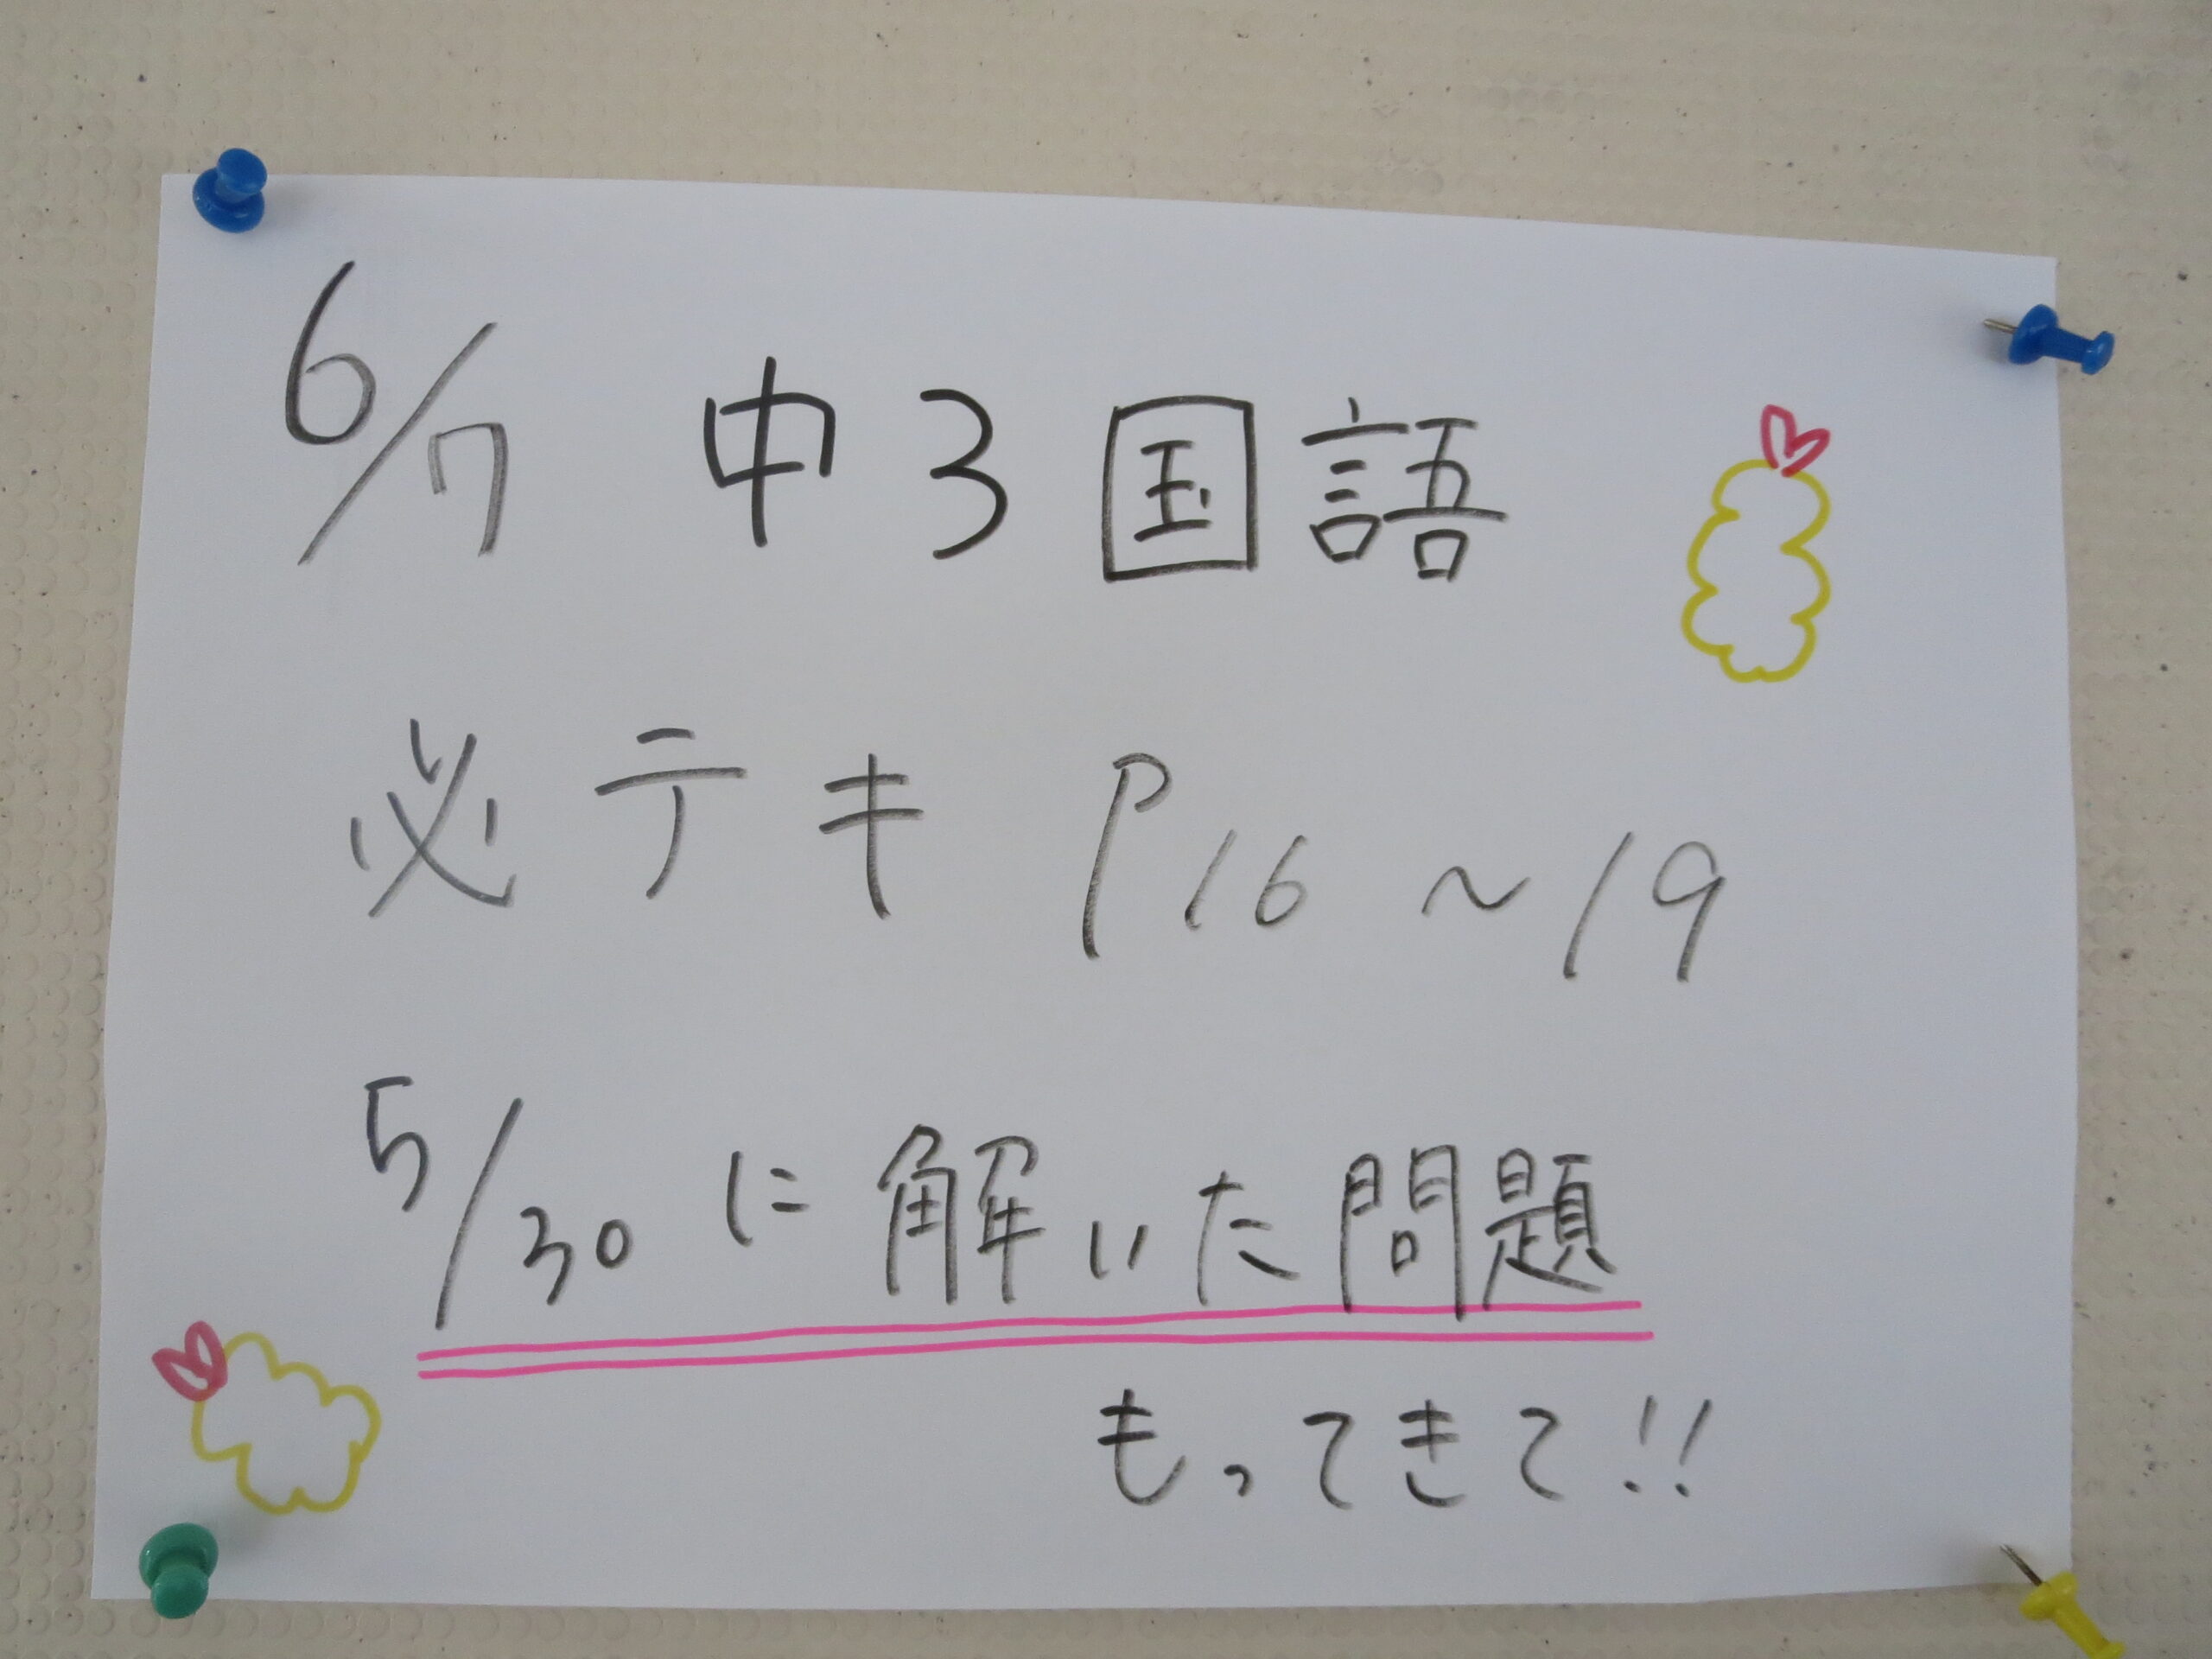 6/7 中3国語
必テキ P16～19
5/30に解いた問題
もってきて!!